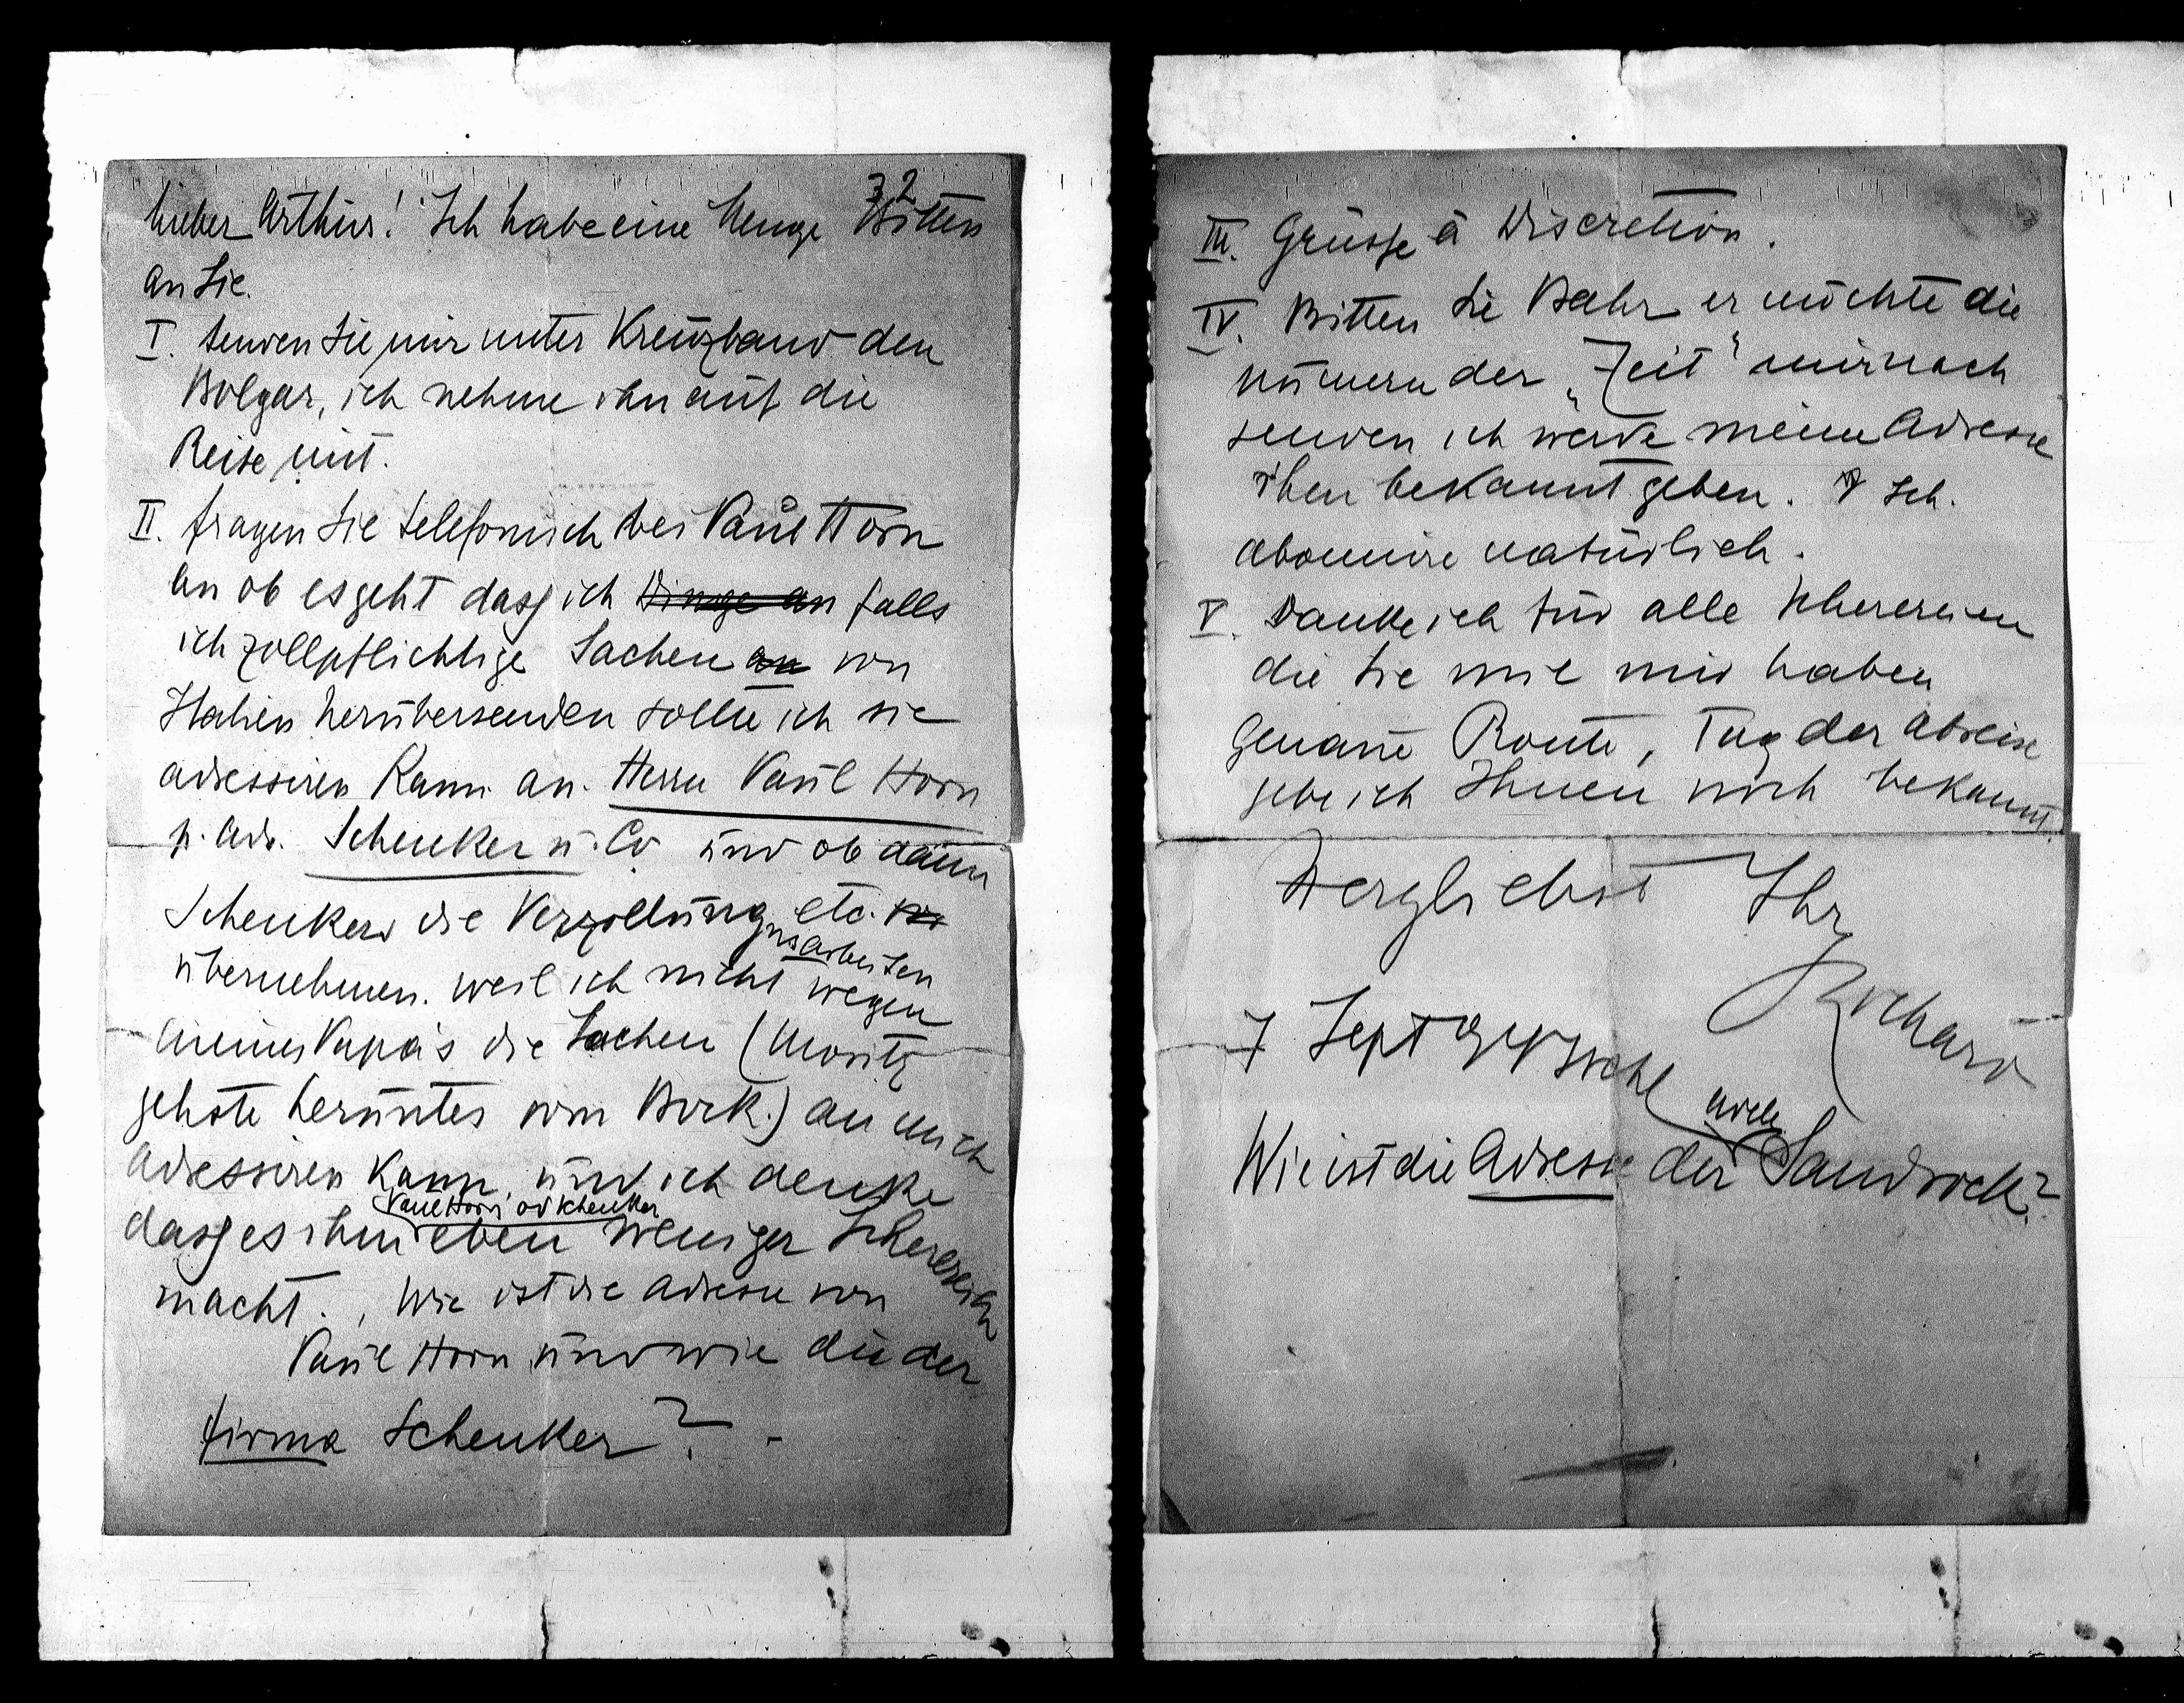 32
Lieber Arthur! Ich habe eine Menge Bitten
an Sie.
I. senden Sie mir unter Kreuzband den
Bolgar, ich nehme ihn auf die
Reise mit.
II. fragen Sie telefonisch bei Paul Horn
an ob es geht dass ich Dinge an falls
ich zollpflichtige Sachen an von
Italien herübersenden sollte ich sie
adressiren kann an. Herrn Paul Horn
p. Adr. Schenker u. Co und ob dann
Schenker die Verzollung etc.
nsarbeiten
übernehmen. weil ich nicht wegen
meines Papa's die Sachen (Moritz
gehste herunter vom Bock.) an mich
adressiren kann, und ich denke
Paul Horn od Schenker
dass es ihm eben weniger Scherereien
macht. Wie ist die Adresse von
Paul Horn und wie die der
Firma Schenker? -
III. Grüsse à Discretion.
IV. Bitten Sie Bahr er möchte die
Numern der „Zeit" mir nach
senden ich werde meine Adresse
ihm bekannt geben. Ich.
abonnire natürlich.
V. Danke ich für alle Scherereien
die Sie mit mir haben
Genaue Route, Tag der Abreise
gebe ich Ihnen noch bekannt.
Herzlichst Ihr
Richard
7 Sept 94 Ischl
Adele
Wie ist die Adresse der Sandrock?